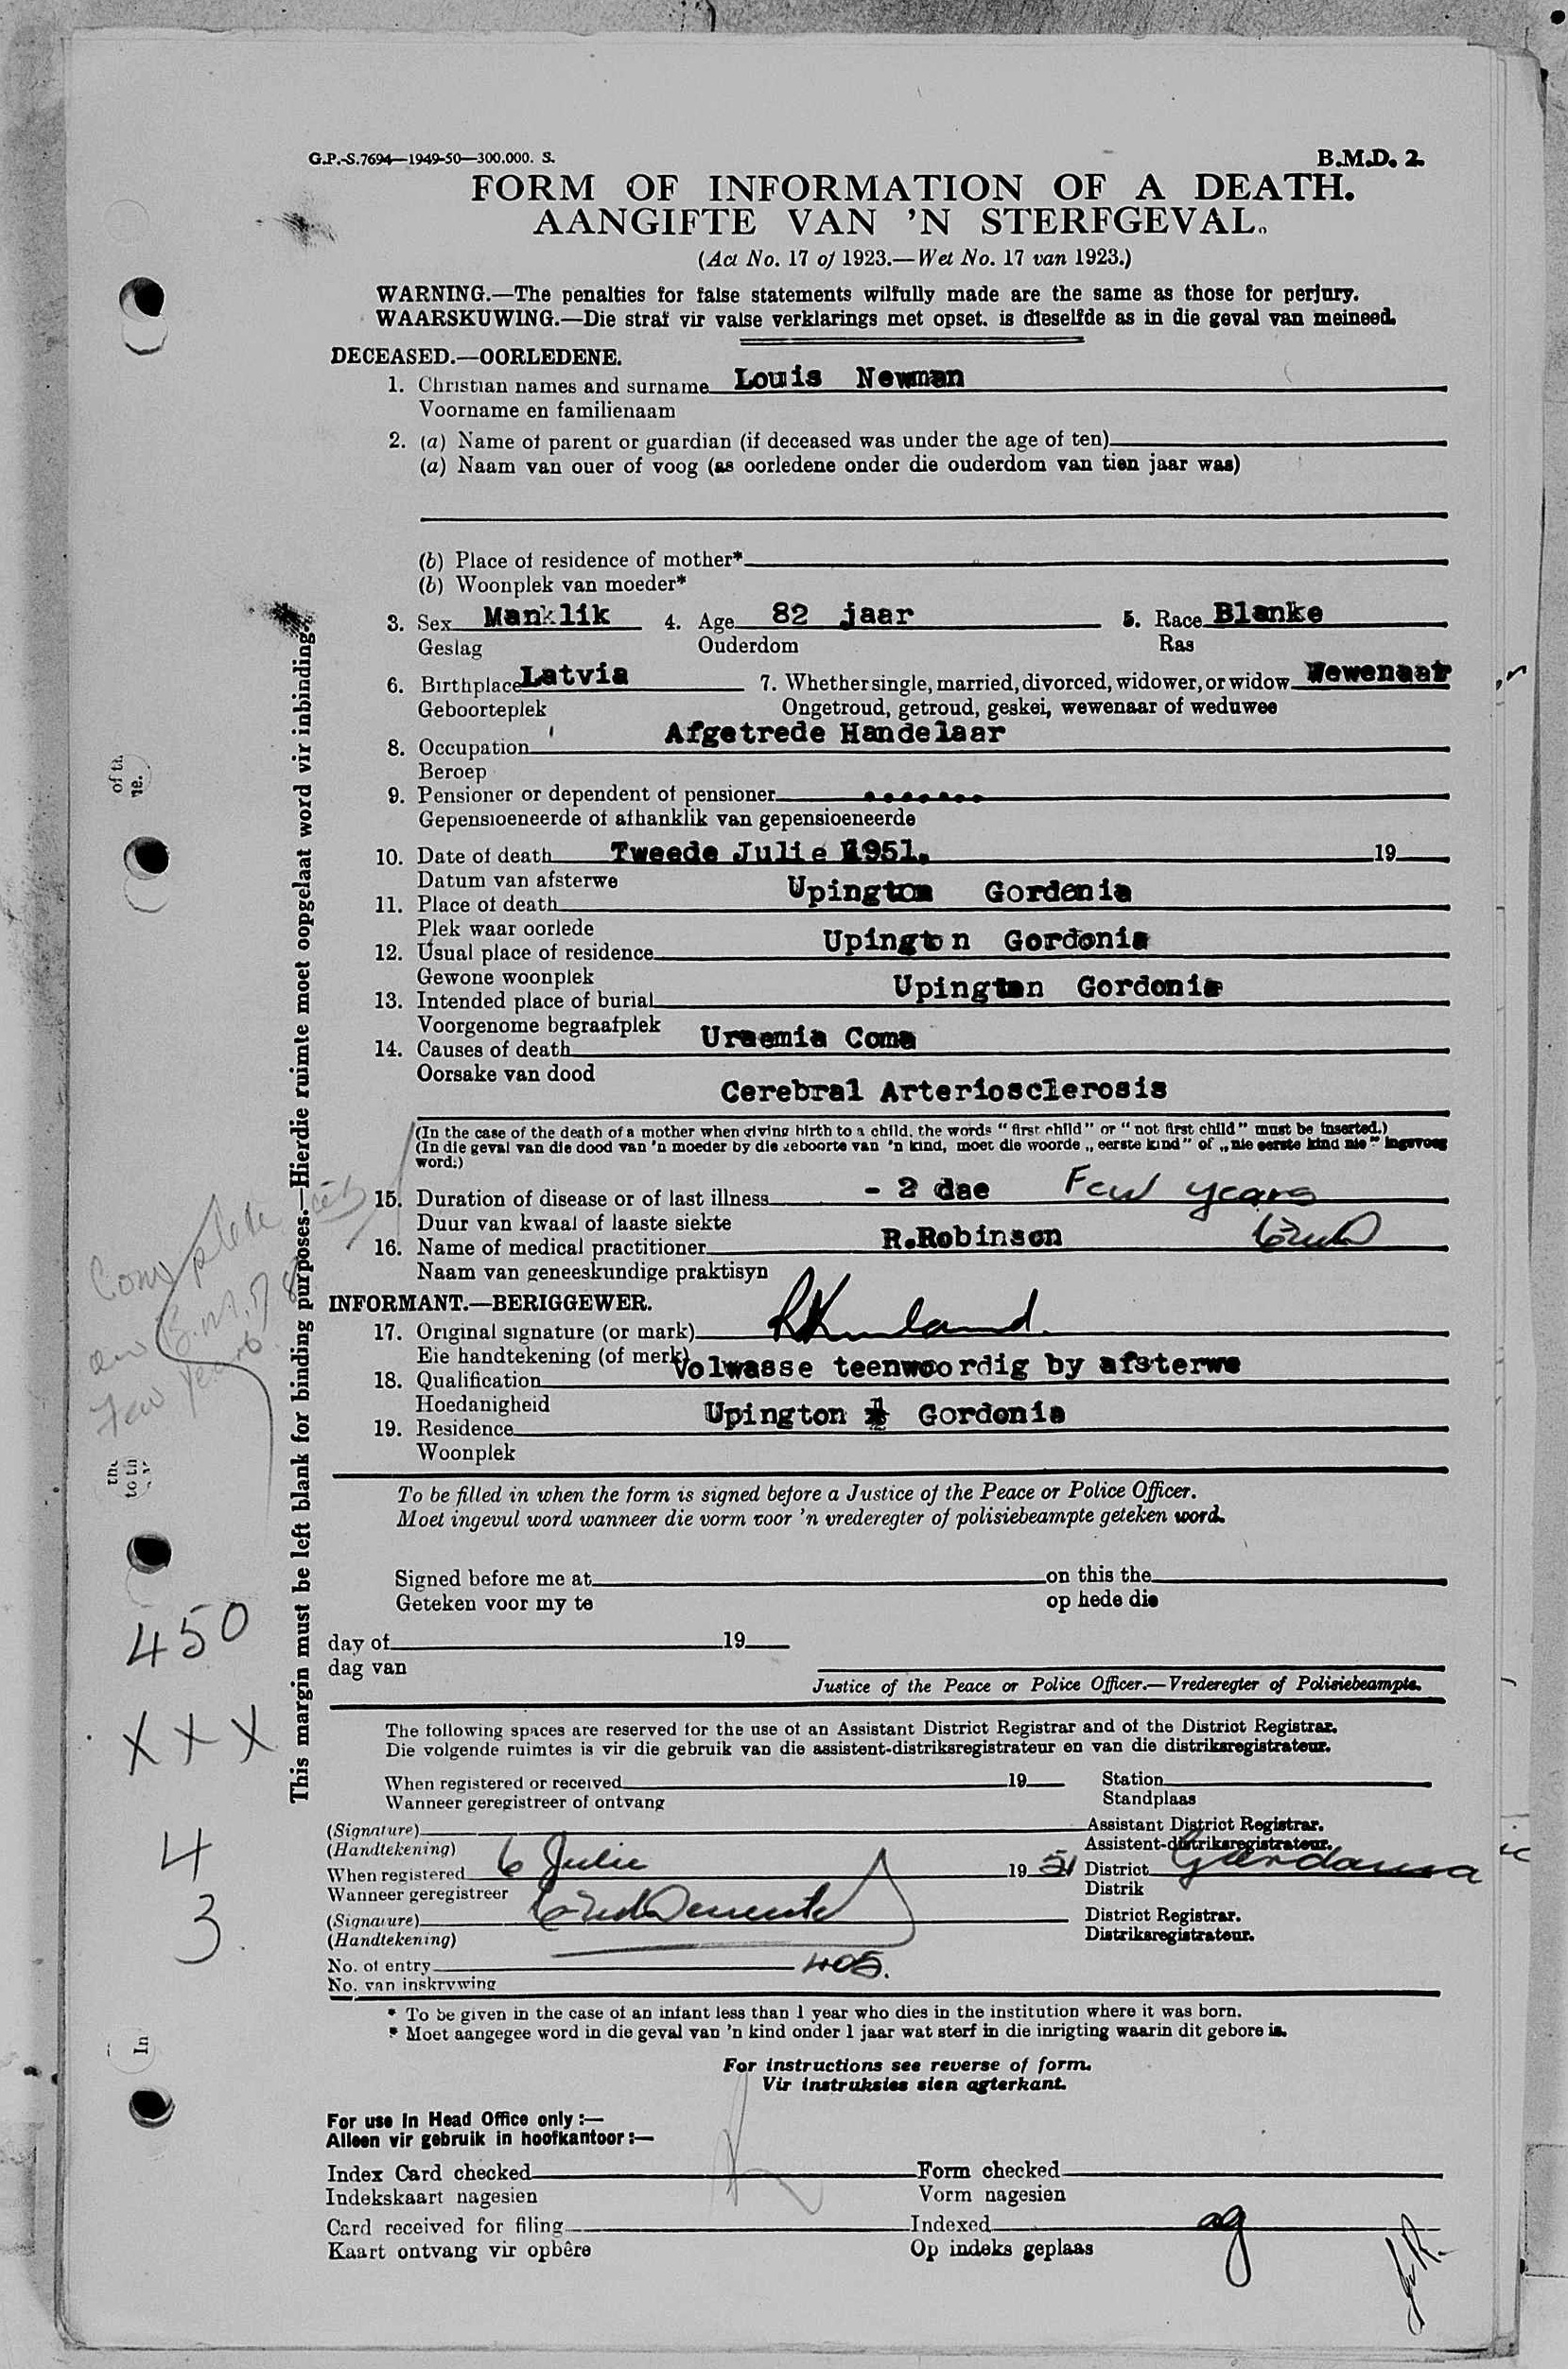 G.P.-S.7694—1949-50—300.000. S.
B.M.D. 2.
FORM OF INFORMATION OF A DEATH.
AANGIFTE VAN 'N STERFGEVAL.
(Act No. 17 of 1923.—Wet No. 17 van 1923.)
WARNING.—The penalties for false statements wilfully made are the same as those for perjury.
WAARSKUWING.—Die straf vir valse verklarings met opset. is dieselfde as in die geval van meineed.
DECEASED.—OORLEDENE.
1. Christian names and surname Louis Newman
Voorname en familienaam
2. (a) Name of parent or guardian (if deceased was under the age of ten)
(a) Naam van ouer of voog (as oorledene onder die ouderdom van tien jaar was)
(b) Place of residence of mother*
(b) Woonplek van moeder*
3. Sex Manklik 4. Age 82 jaar 5. Race Blanke
Geslag Ouderdom Ras
6. Birthplace Latvia 7. Whether single, married, divorced, widower, or widow Wewenaar
Geboorteplek Ongetroud, getroud, geskei, wewenaar of weduwee
8. Occupation Afgetrede Handelaar
Beroep
9. Pensioner or dependent of pensioner .......
Gepensioeneerde of afhanklik van gepensioeneerde
10. Date of death Tweede Julie 1951. 19
Datum van afsterwe
11. Place of death Upington Gordenia
Plek waar oorlede
12. Usual place of residence Upington Gordonia
Gewone woonplek
13. Intended place of burial Upington Gordonia
Voorgenome begraafplek
14. Causes of death Uraemia Coma
Oorsake van dood
Cerebral Arteriosclerosis
(In the case of the death of a mother when giving birth to a child, the words "first child" or "not first child" must be inserted.)
(In die geval van die dood van 'n moeder by die geboorte van 'n kind, moet die woorde „eerste kind" of „nie eerste kind nie" ingevoeg
word.)
15. Duration of disease or of last illness - 2 dae Few years
Duur van kwaal of laaste siekte
16. Name of medical practitioner R.Robinson
Naam van geneeskundige praktisyn
INFORMANT.—BERIGGEWER.
17. Original signature (or mark)
Eie handtekening (of merk)
18. Qualification Volwasse teenwoordig by afsterwe
Hoedanigheid
19. Residence Upington Gordonia
Woonplek
To be filled in when the form is signed before a Justice of the Peace or Police Officer.
Moet ingevul word wanneer die vorm voor 'n vrederegter of polisiebeampte geteken word.
Signed before me at on this the
Geteken voor my te op hede die
day of 19
dag van
Justice of the Peace or Police Officer.—Vrederegter of Polisiebeampte.
The following spaces are reserved for the use of an Assistant District Registrar and of the District Registrar.
Die volgende ruimtes is vir die gebruik van die assistent-distriksregistrateur en van die distriksregistrateur.
When registered or received 19 Station
Wanneer geregistreer of ontvang Standplaas
(Signature) Assistant District Registrar.
(Handtekening) Assistent-distriksregistrateur.
When registered 6 Julie 19 51 District Gordonia
Wanneer geregistreer Distrik
(Signature) District Registrar.
(Handtekening) Distriksregistrateur.
No. of entry 405.
No. van inskrywing
* To be given in the case of an infant less than 1 year who dies in the institution where it was born.
* Moet aangegee word in die geval van 'n kind onder 1 jaar wat sterf in die inrigting waarin dit gebore is.
For instructions see reverse of form.
Vir instruksies sien agterkant.
For use in Head Office only :—
Alleen vir gebruik in hoofkantoor :—
Index Card checked Form checked
Indekskaart nagesien Vorm nagesien
Card received for filing Indexed ag
Kaart ontvang vir opbêre Op indeks geplaas
This margin must be left blank for binding purposes.—Hierdie ruimte moet oopgelaat word vir inbinding.
Complete
Few years
450
XXX
4
3.